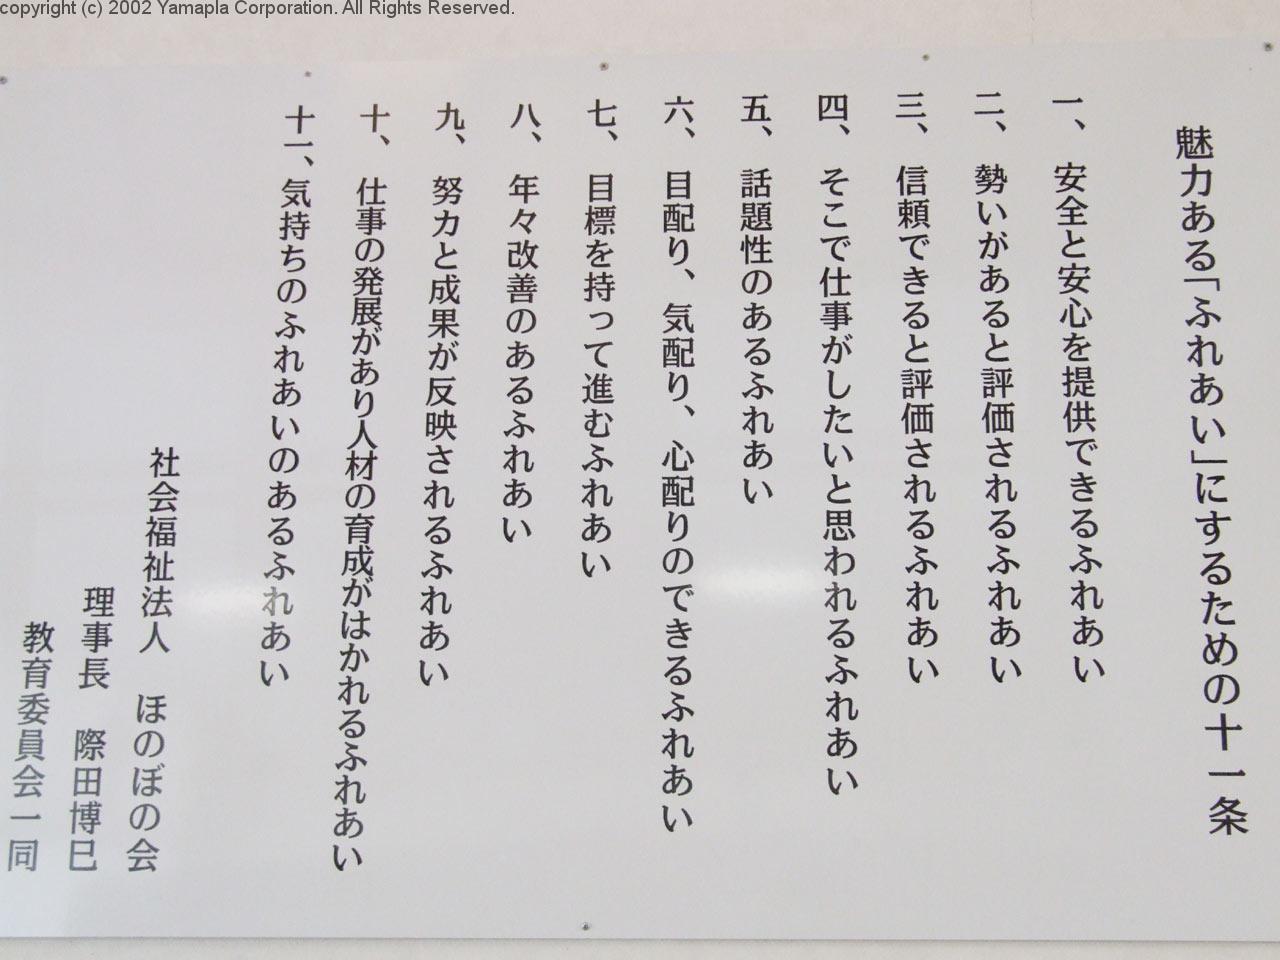 copyright (c) 2002 Yamapla Corporation. All Rights Reserved.
魅力ある「ふれあい」にするための十一条
一、安全と安心を提供できるふれあい
二、勢いがあると評価されるふれあい
三、信頼できると評価されるふれあい
四、そこで仕事がしたいと思われるふれあい
五、話題性のあるふれあい
六、目配り、気配り、心配りのできるふれあい
七、目標を持って進むふれあい
八、年々改善のあるふれあい
九、努力と成果が反映されるふれあい
十、仕事の発展があり人材の育成がはかれるふれあい
十一、気持ちのふれあいのあるふれあい
社会福祉法人 ほのぼの会
理事長 際田博巳
教育委員会一同